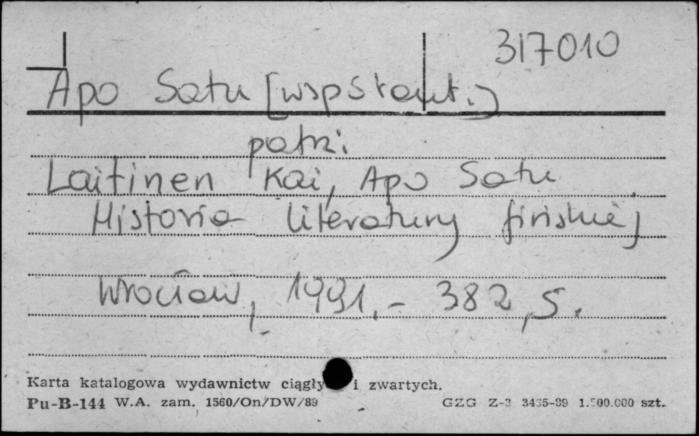 317010
Apo Satu [współaut.]
patrz:
Laitinen Kai, Apo Satu
Historia literatury fińskiej
Wrocław, 1991.- 382, s.
Karta katalogowa wydawnictw ciągły i zwartych.
Pu-B-144 W.A. zam. 1560/On/DW/89 GZG Z-3 3435-89 1.500.000 szt.